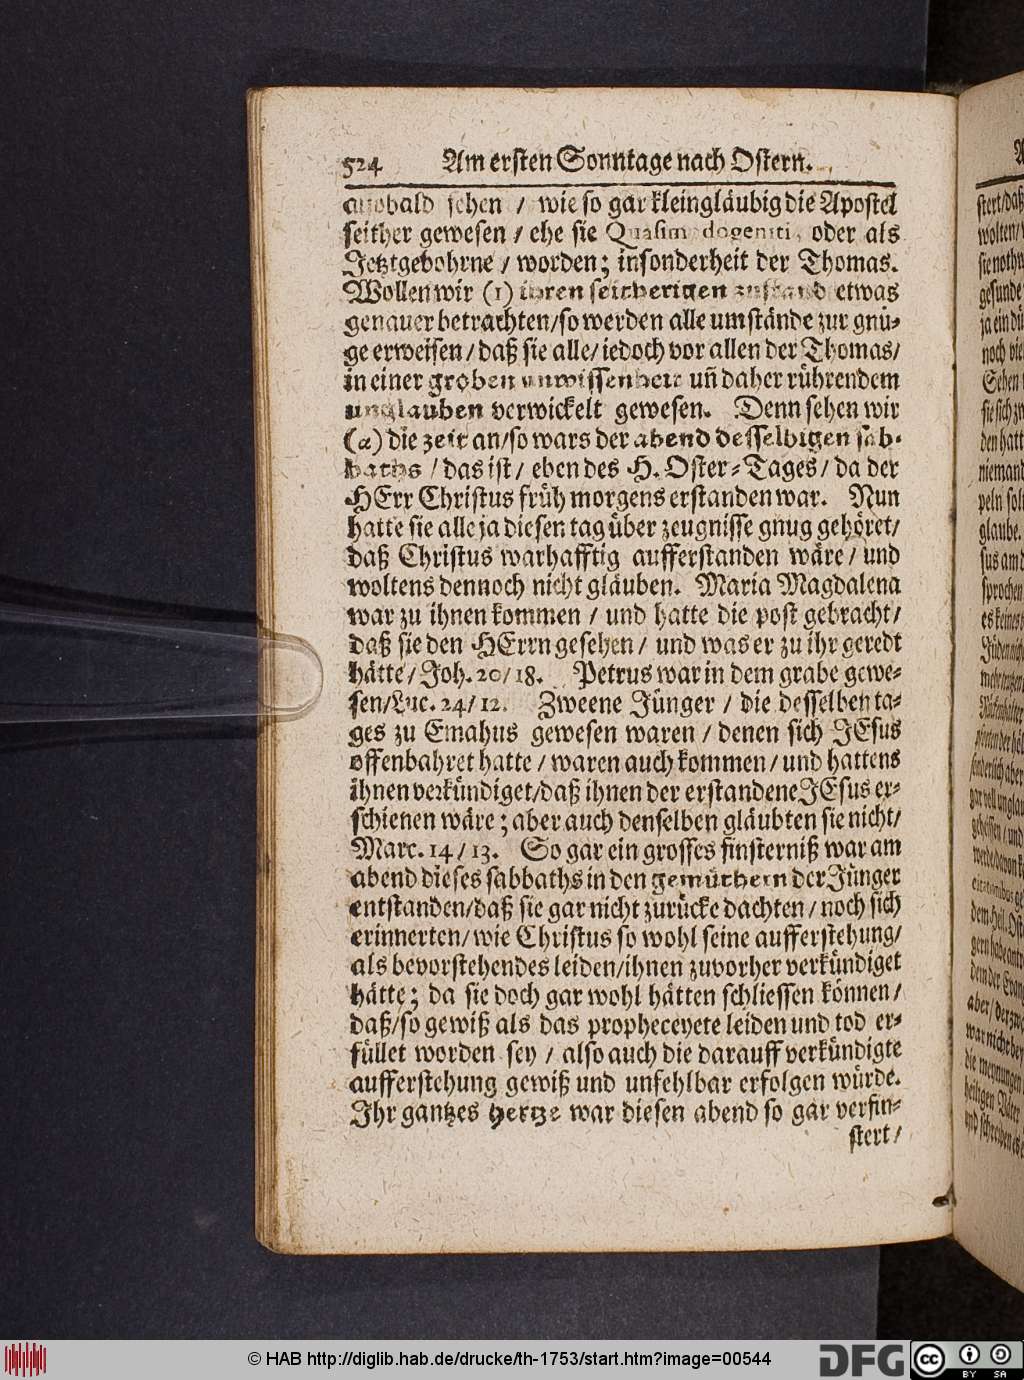 524 Am ersten Sonntage nach Ostern.
alsobald sehen / wie so gar kleingläubig die Apostel
seither gewesen / ehe sie Quasimodogeniti, oder als
Jetztgebohrne / worden; insonderheit der Thomas.
Wollen wir (1) ihren seitherigen zustand etwas
genauer betrachten/so werden alle umstände zur gnü-
ge erweisen / daß sie alle/ iedoch vor allen der Thomas/
in einer groben unwissenheit uñ daher rührendem
unglauben verwickelt gewesen. Denn sehen wir
(a) die zeit an/so wars der abend desselbigen sab-
baths / das ist / eben des H. Oster-Tages / da der
HErr Christus früh morgens erstanden war. Nun
hatte sie alle ja diesen tag über zeugnisse gnug gehöret/
daß Christus warhafftig aufferstanden wäre / und
woltens dennoch nicht gläuben. Maria Magdalena
war zu ihnen kommen / und hatte die post gebracht/
daß sie den HErrn gesehen / und was er zu ihr geredt
hätte / Joh. 20/18. Petrus war in dem grabe gewe-
sen/Luc. 24/12. Zweene Jünger / die desselben ta-
ges zu Emahus gewesen waren / denen sich JEsus
offenbahret hatte / waren auch kommen / und hattens
ihnen verkündiget/daß ihnen der erstandene JEsus er-
schienen wäre; aber auch denselben gläubten sie nicht/
Marc. 14/13. So gar ein grosses finsterniß war am
abend dieses sabbaths in den gemüthern der Jünger
entstanden/daß sie gar nicht zurücke dachten / noch sich
erinnerten/ wie Christus so wohl seine aufferstehung/
als bevorstehendes leiden/ihnen zuvorher verkündiget
hätte; da sie doch gar wohl hätten schliessen können /
daß/so gewiß als das propheceyete leiden und tod er-
füllet worden sey / also auch die darauff verkündigte
aufferstehung gewiß und unfehlbar erfolgen würde.
Ihr gantzes hertze war diesen abend so gar verfin-
stert /
© HAB http://diglib.hab.de/drucke/th-1753/start.htm?image=00544
DFG
cc BY SA